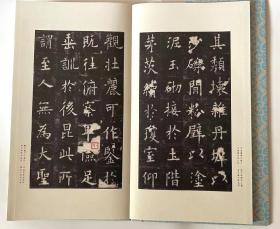 其頹壞雜丹墀以
沙礫間粉壁以塗
泥玉砌接於土階
茅茨續於瓊室仰
觀壯麗可作鑒於
既往俯察卑儉足
垂訓於後昆此所
謂至人無為大聖